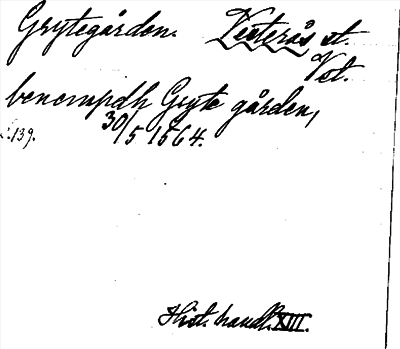 Grytegården. Vesterås st.
Vst.
benempdh Gryte gården,
s. 139. 30/5 1564.
Hist. handl. XIII.